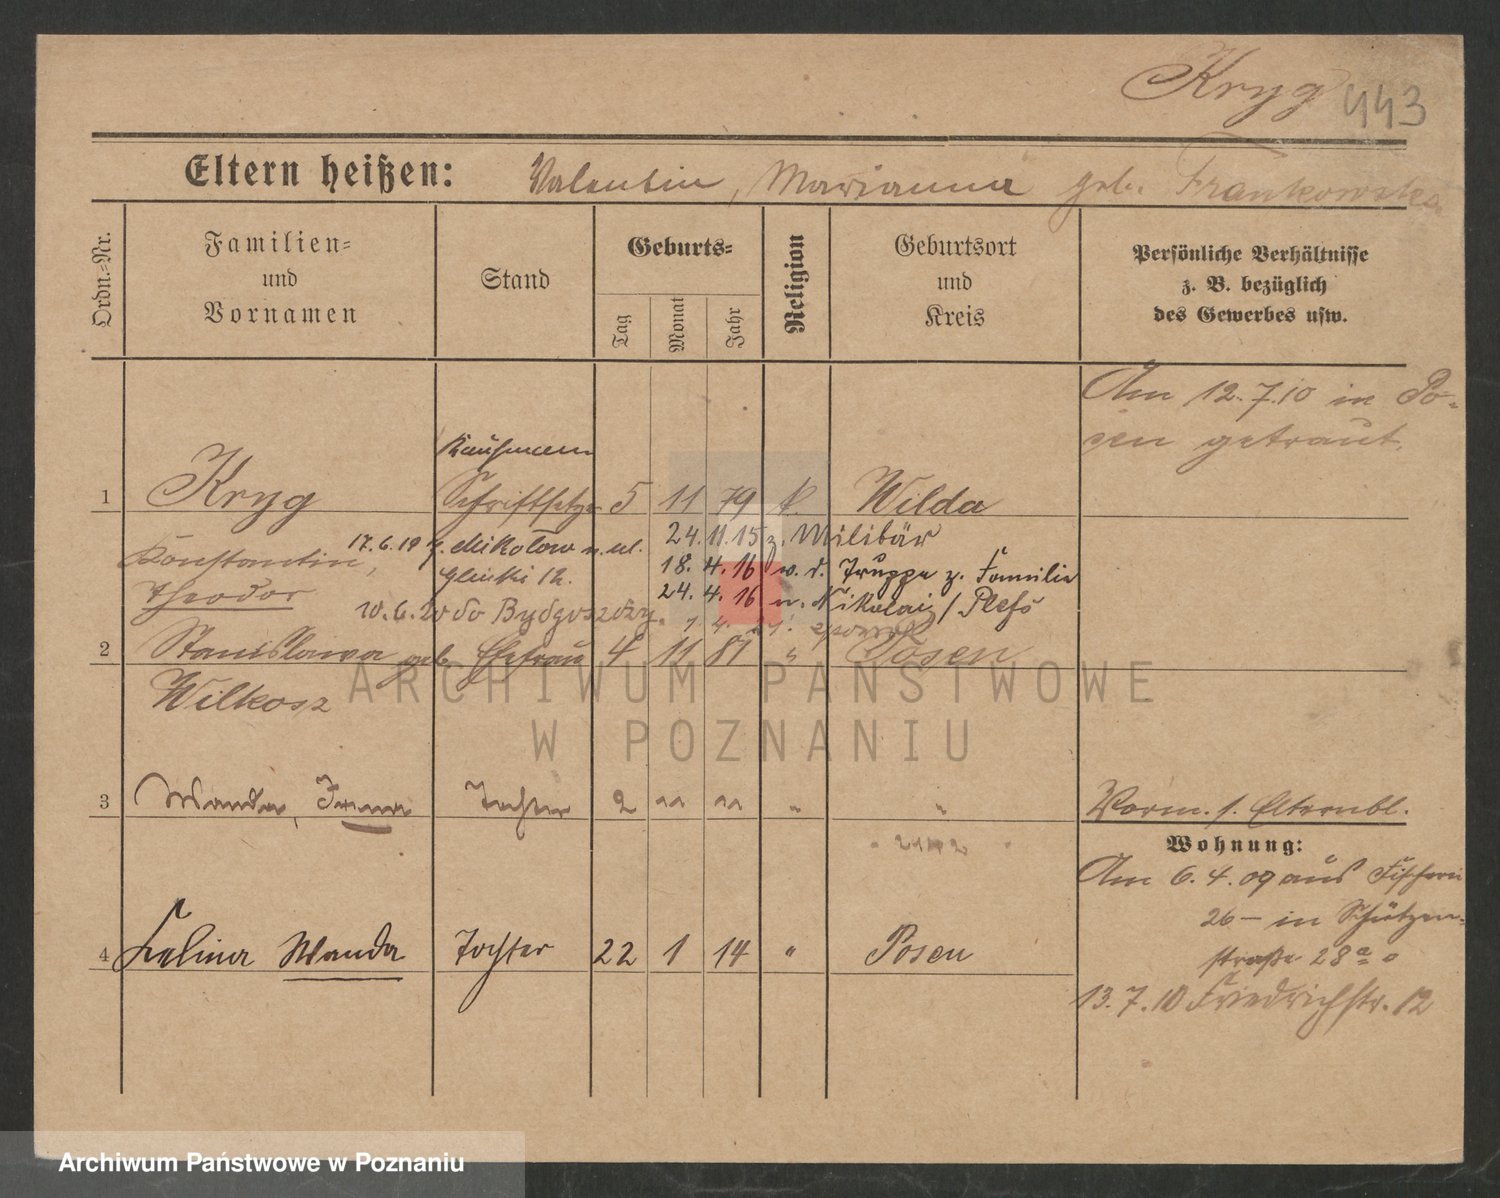 Kryg 443
Eltern heißen: Valentin, Marianna geb. Frankowska
Ordn.=Nr.
Familien= und Vornamen
Stand
Geburts=
Tag
Monat
Jahr
Religion
Geburtsort und Kreis
Persönliche Verhältnisse
z. B. bezüglich
des Gewerbes usw.
Am 12.7.10 in Po-
sen getraut.
Kaufmann
1 Kryg Schriftsetzer 5 11 79 k. Wilda
Konstantin, 17.6.19 z. Mikolow n. ul. 24.11.15 z. Militär
Glinki 12. 18.4.16 w. d. Truppe z. Familie
Theodor 24.4.16 n. Nikolai / Pleß
10.6.20 do Bydgoszczy.
2 Stanislawa geb. Ehefrau 4 11 81 " Posen
Wilkosz
ARCHIWUM PAŃSTWOWE
W POZNANIU
3 Wanda, Irena Tochter 2 11 11 " "
Vorm. s. Elternbl.
Wohnung:
Am 6.4.09 aus Fischerei
26 – in Schützen-
straße 28a
4 Felina Wanda Tochter 22 1 14 " Posen
13.7.10 Friedrichstr. 12
Archiwum Państwowe w Poznaniu